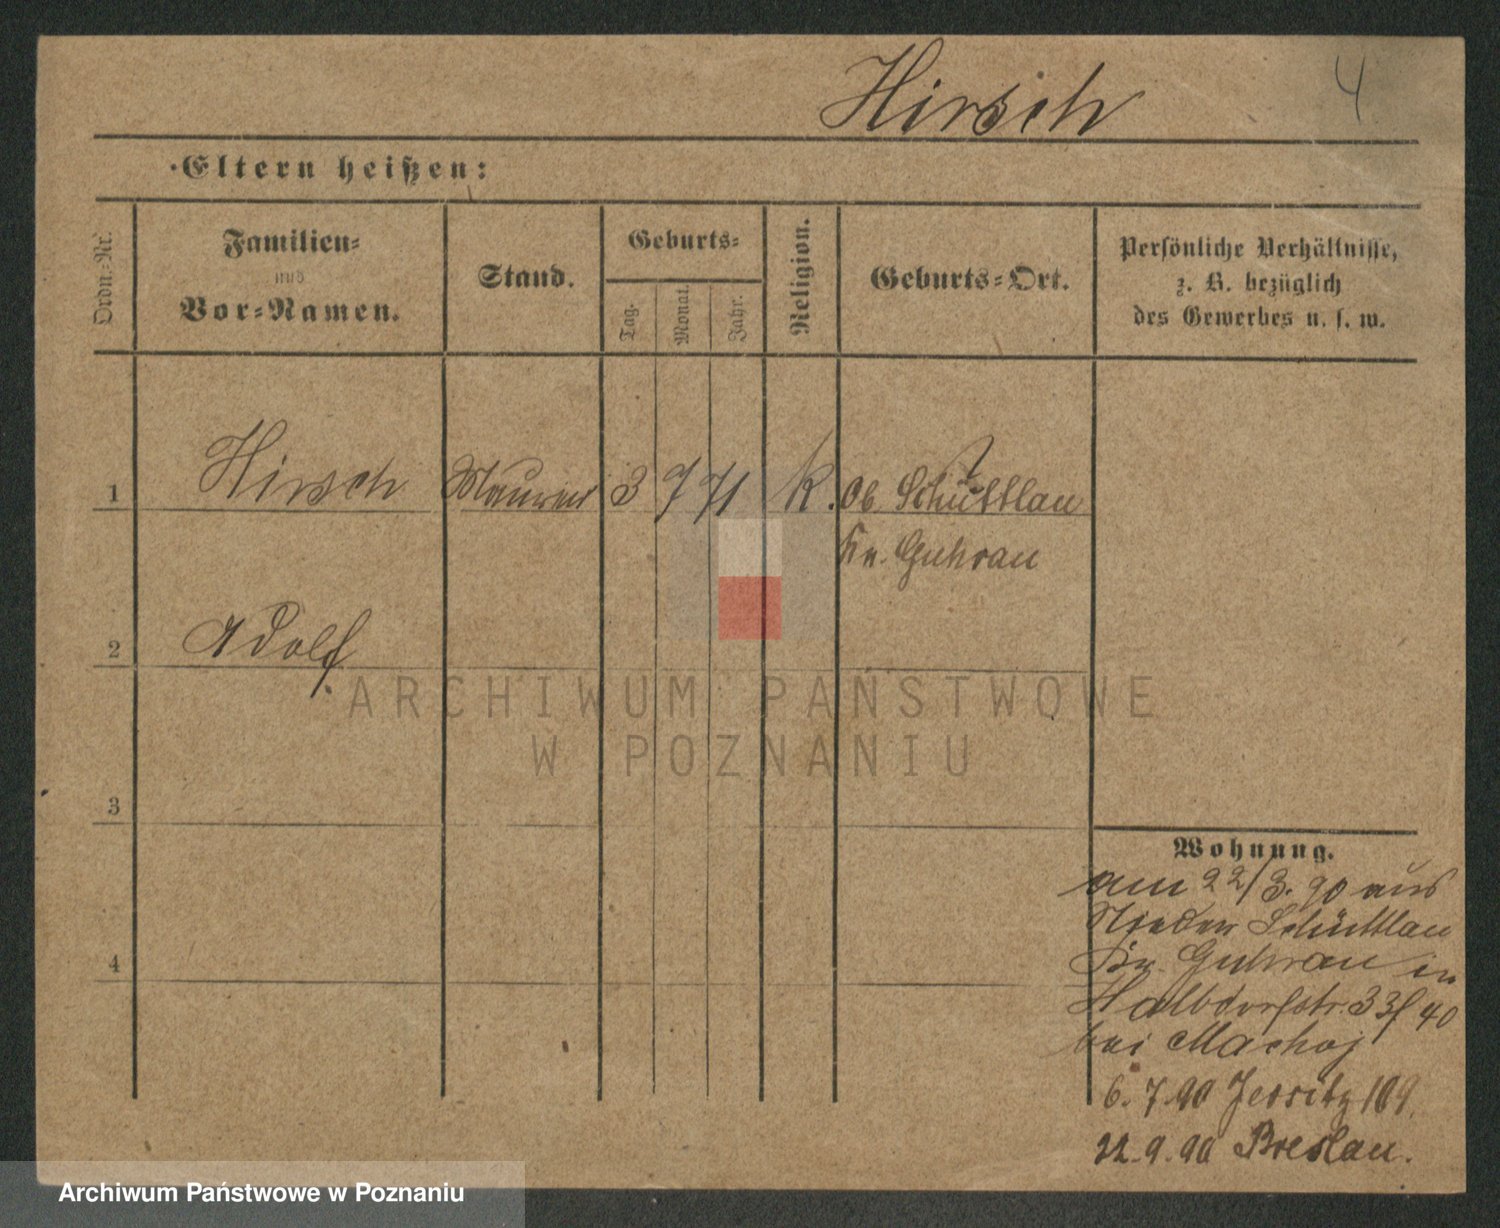 Hirsch
4
Eltern heißen:
Ordn.-Nr.
Familien-
und
Vor-Namen.
Stand.
Geburts-
Tag.
Monat.
Jahr.
Religion.
Geburts-Ort.
Persönliche Verhältnisse,
z. B. bezüglich
des Gewerbes u. s. w.
1 Hirsch Maurer 3 7 71 k. Ob. Schüttlau
Kr. Guhrau
2 Adolf
3
4
Wohnung.
am 22/3. 90 aus
Nieder Schüttlau
Kr. Guhrau in
Halbdorfstr. 33/40
bei Machoj
6. 7. 90 Jersitz 109.
22. 9. 90 Breslau.
ARCHIWUM PAŃSTWOWE
W POZNANIU
Archiwum Państwowe w Poznaniu